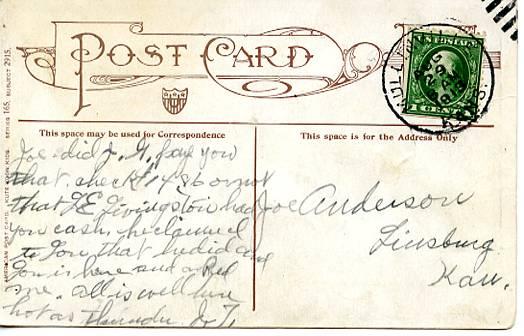 POST CARD
This space may be used for Correspondence
This space is for the Address Only
AMERICAN POST CARD. KUTE KIDS SERIES 165, SUBJECT 2915.
AUG
29
KANS.
1 CENT 1
Joe did J. G. pay you
that check $14.86 or not
that L.E. Livingston had
you cash, he claimed
to you that he did and
Gon is here and a Red
one. all is well here
hot as thunder J. T.
Joe Anderson
Linsburg
Kan.